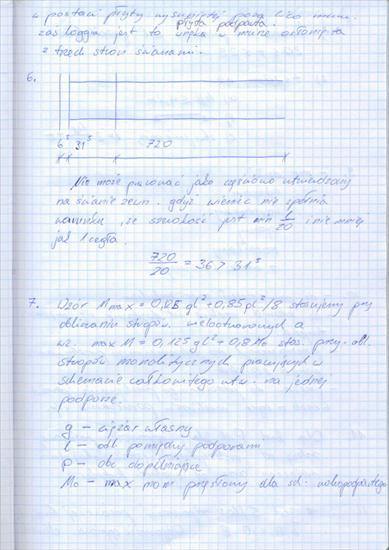 w postaci płyty wysuniętej poza lico muru.
płyta podparta.
zaś loggia jest to wnęka w murze osłonięta
z trzech stron ścianami.
6.
6⁵ 31⁵ 720
Nie może pracować jako częściowo utwierdzony
na ścianie zewn. gdyż wieniec nie spełnia
warunku, że szerokość jest min l/20 i nie mniej
jak 1 cegła.
720/20 = 36 > 31⁵
7. Wzór M max = 0,125 gl² + 0,85 pl²/8 stosujemy przy
obliczaniu stropów wielootworowych a
wz. max M = 0,125 gl² + 0,8 M₀ stos. przy. obl.
stropów monolitycznych pracujących w
schemacie całkowitego utw. na jednej
podporze.
g – ciężar własny
l – odl. pomiędzy podporami
p – obc dopełniające
M₀ – max mom przęsłowy dla sch. wolnopodpartego